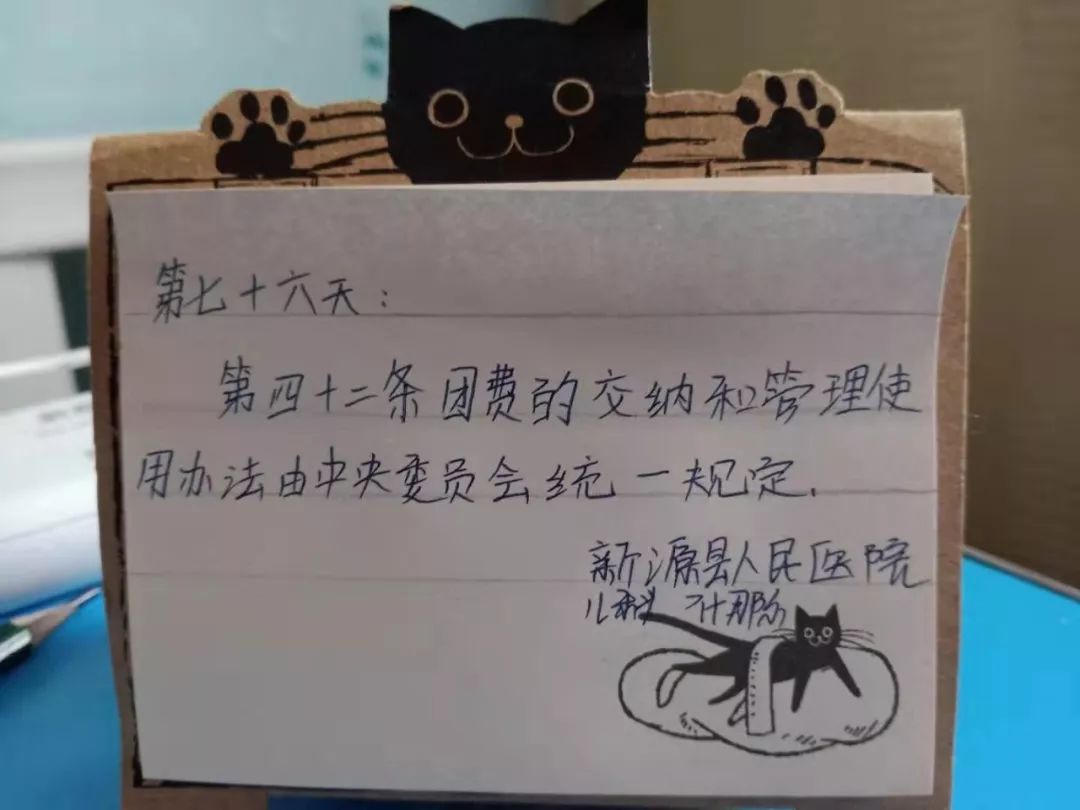 第七十六天：
第四十二条团费的交纳和管理使
用办法由中央委员会统一规定.
新源县人民医院
儿科